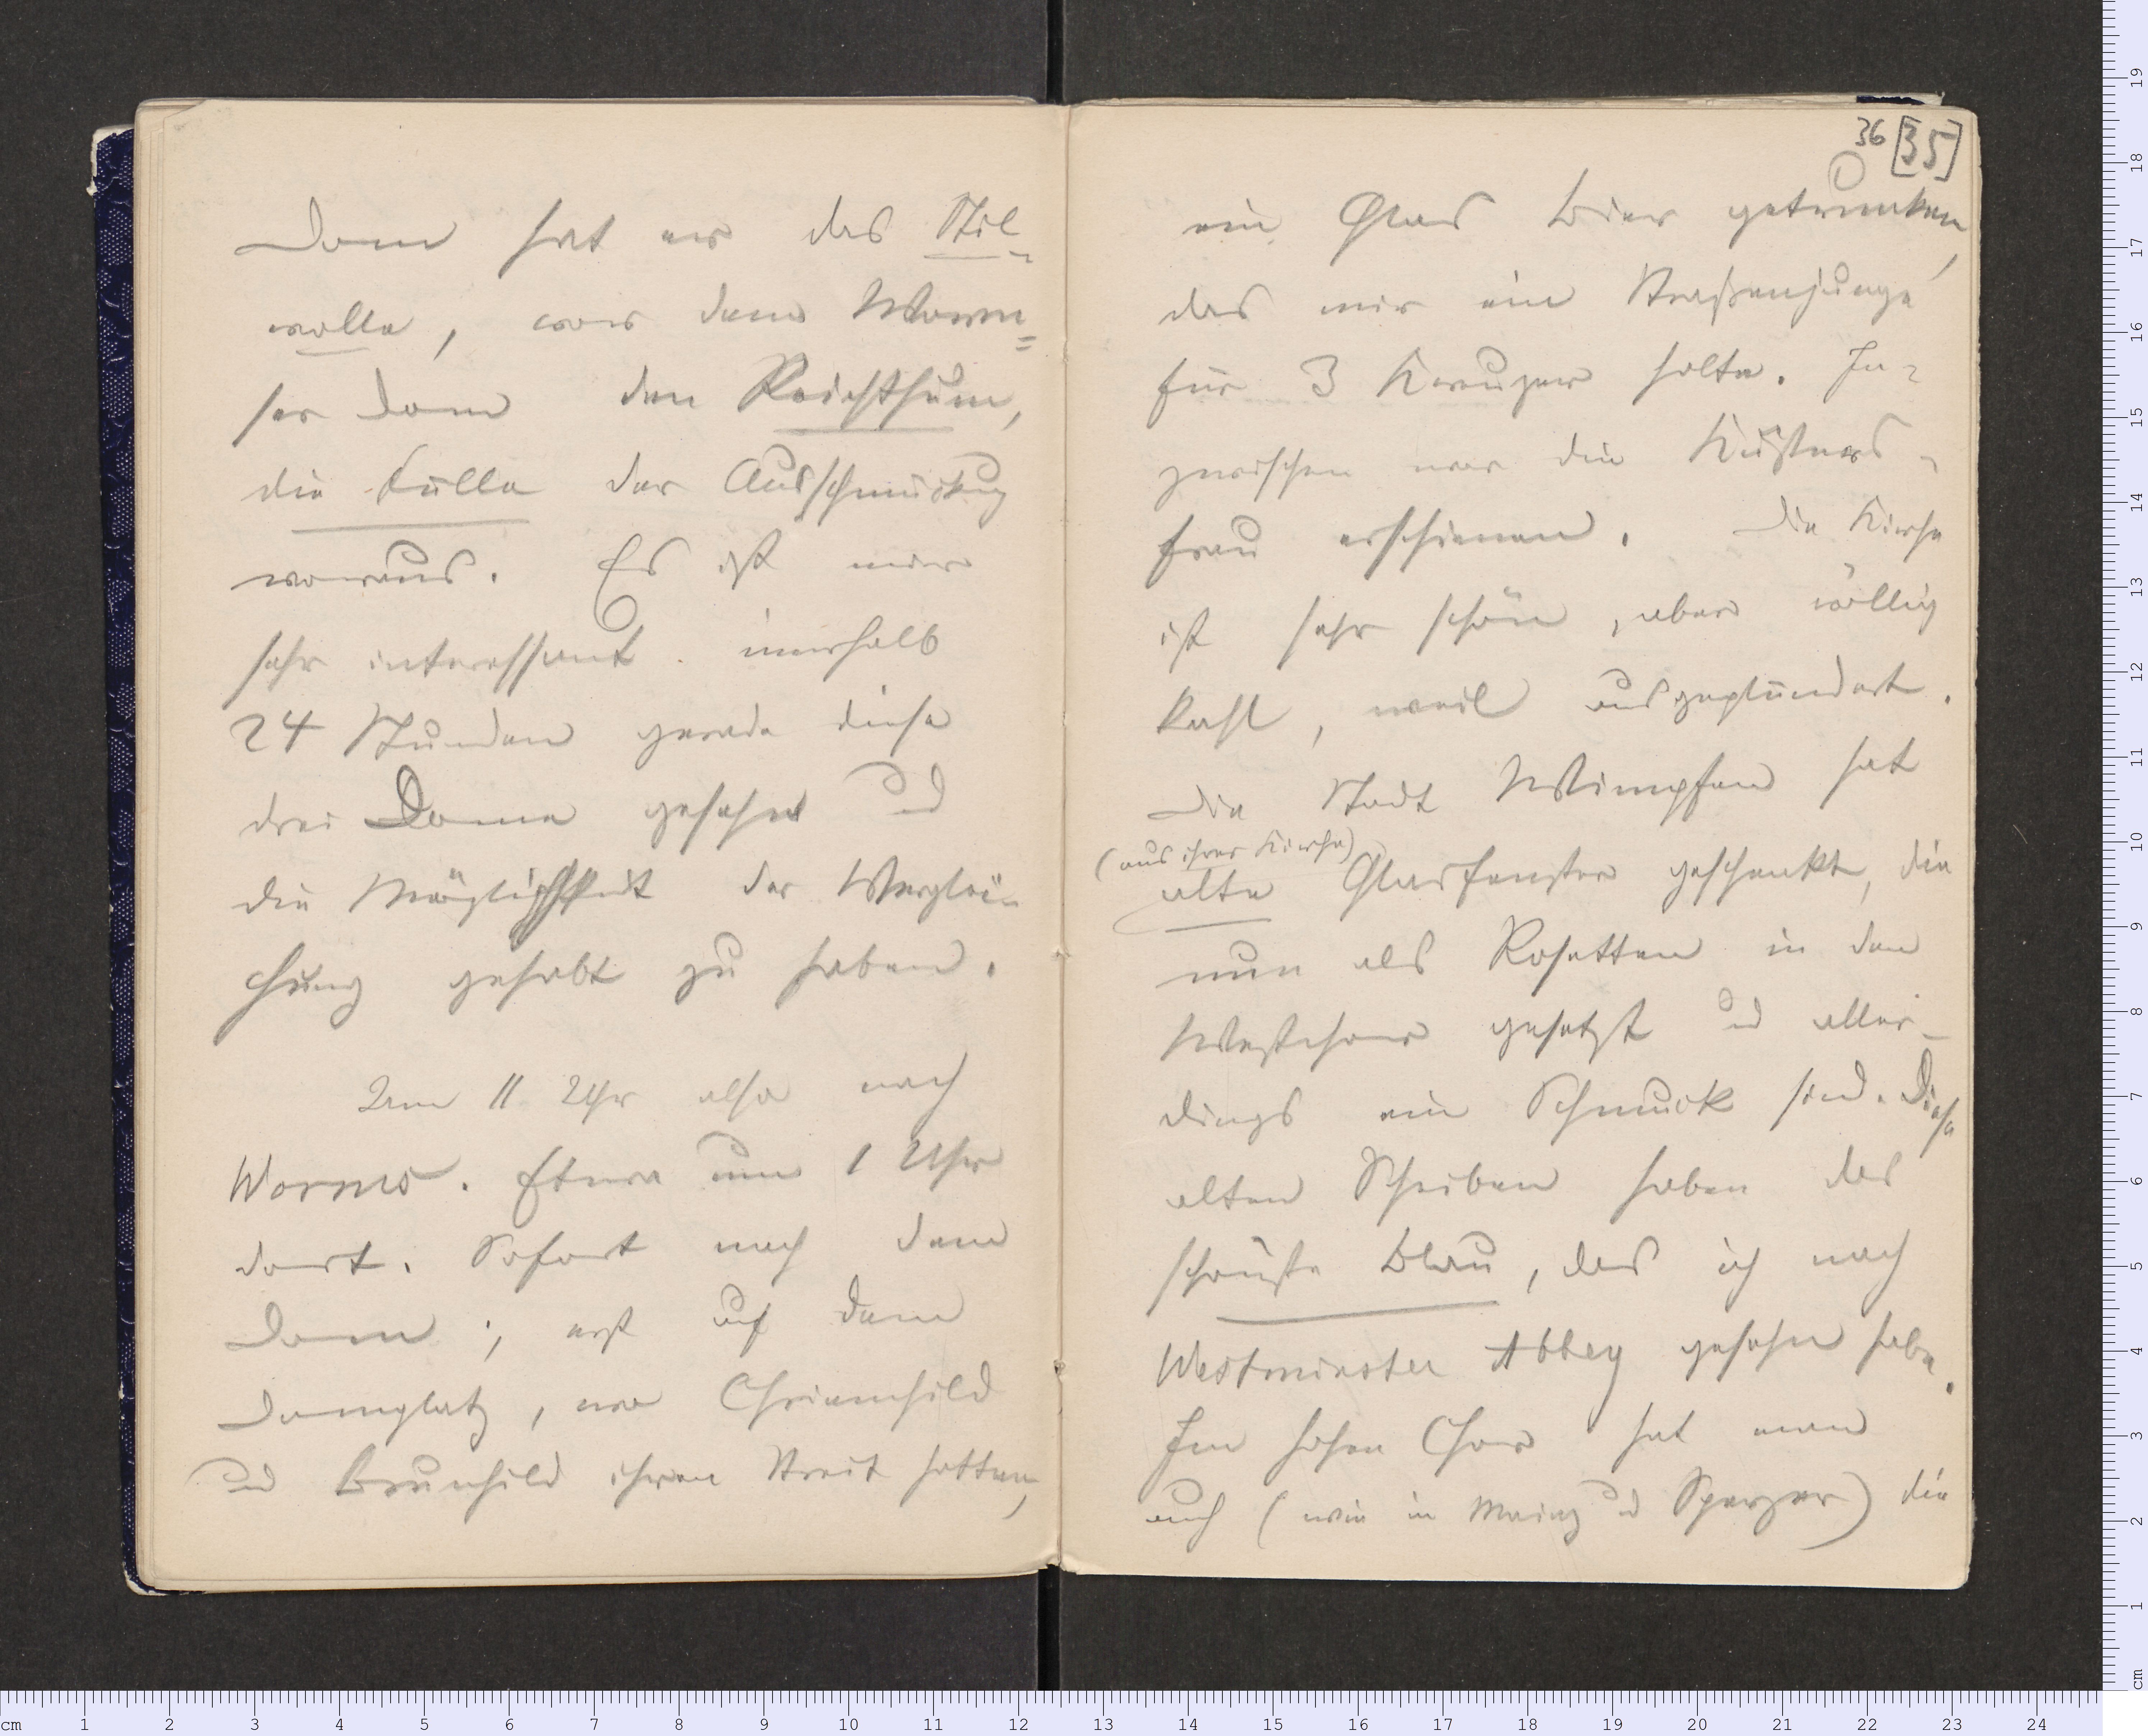 Dom hat er das Stil-
volle, vor dem Worm=
ser Dom den Reichthum,
die Fülle der Ausschmückung
voraus. Es ist mir
sehr interessant innerhalb
24 Stunden gerade diese
drei Dome gesehn und
die Möglichkeit der Verglei-
chung gehabt zu haben.
Um 11 Uhr also nach
Worms. Etwa um 1 Uhr
dort. Sofort nach dem
Dom; erst auf dem
Domplatz, wo Chriemhild
und Brunhild ihren Streit hatten,
36 [35]
ein Glas Bier getrunken,
das mir ein Straßenjunge
für 3 Kreuzer holte. In-
zwischen war die Küsters-
frau erschienen. Die Kirche
ist sehr schön, aber völlig
kahl, weil ausgeplündert.
Die Stadt Wimpfen hat
(aus ihrer Kirche)
alte Glasfenster geschenkt, die
nun als Rosetten in den
Westchor gesetzt und aller-
dings ein Schmuck sind. Diese
alten Scheiben haben das
schönste Blau, das ich nach
Westminster Abbey gesehn habe.
Im hohen Chor hat man
auch (wie in Mainz und Speyer) die